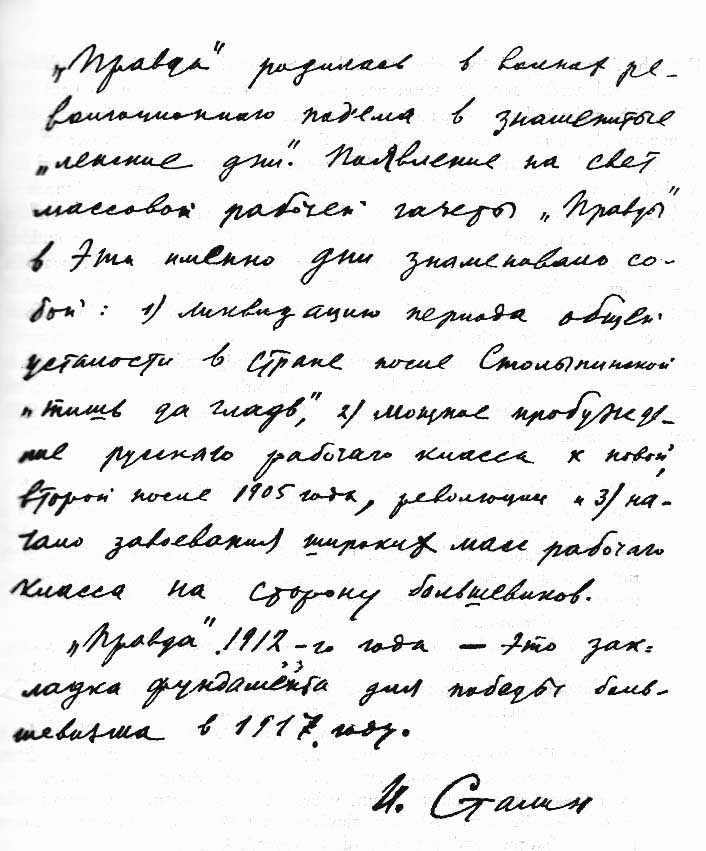 „Правда" родилась в волнах ре-
волюционного подъема в знаменитые
„ленские дни". Появление на свет
массовой рабочей газеты „Правды"
в эти именно дни знаменовало со-
бой: 1) ликвидацию периода общей
усталости в стране после Столыпинской
„тишь да гладь", 2) мощное пробужде-
ние русского рабочаго класса к новой,
второй после 1905 года, революции и 3) на-
чало завоевания широких масс рабочаго
класса на сторону большевиков.
„Правда" 1912-го года — это зак-
ладка фундамента для победы боль-
шевизма в 1917 году.
И. Сталин